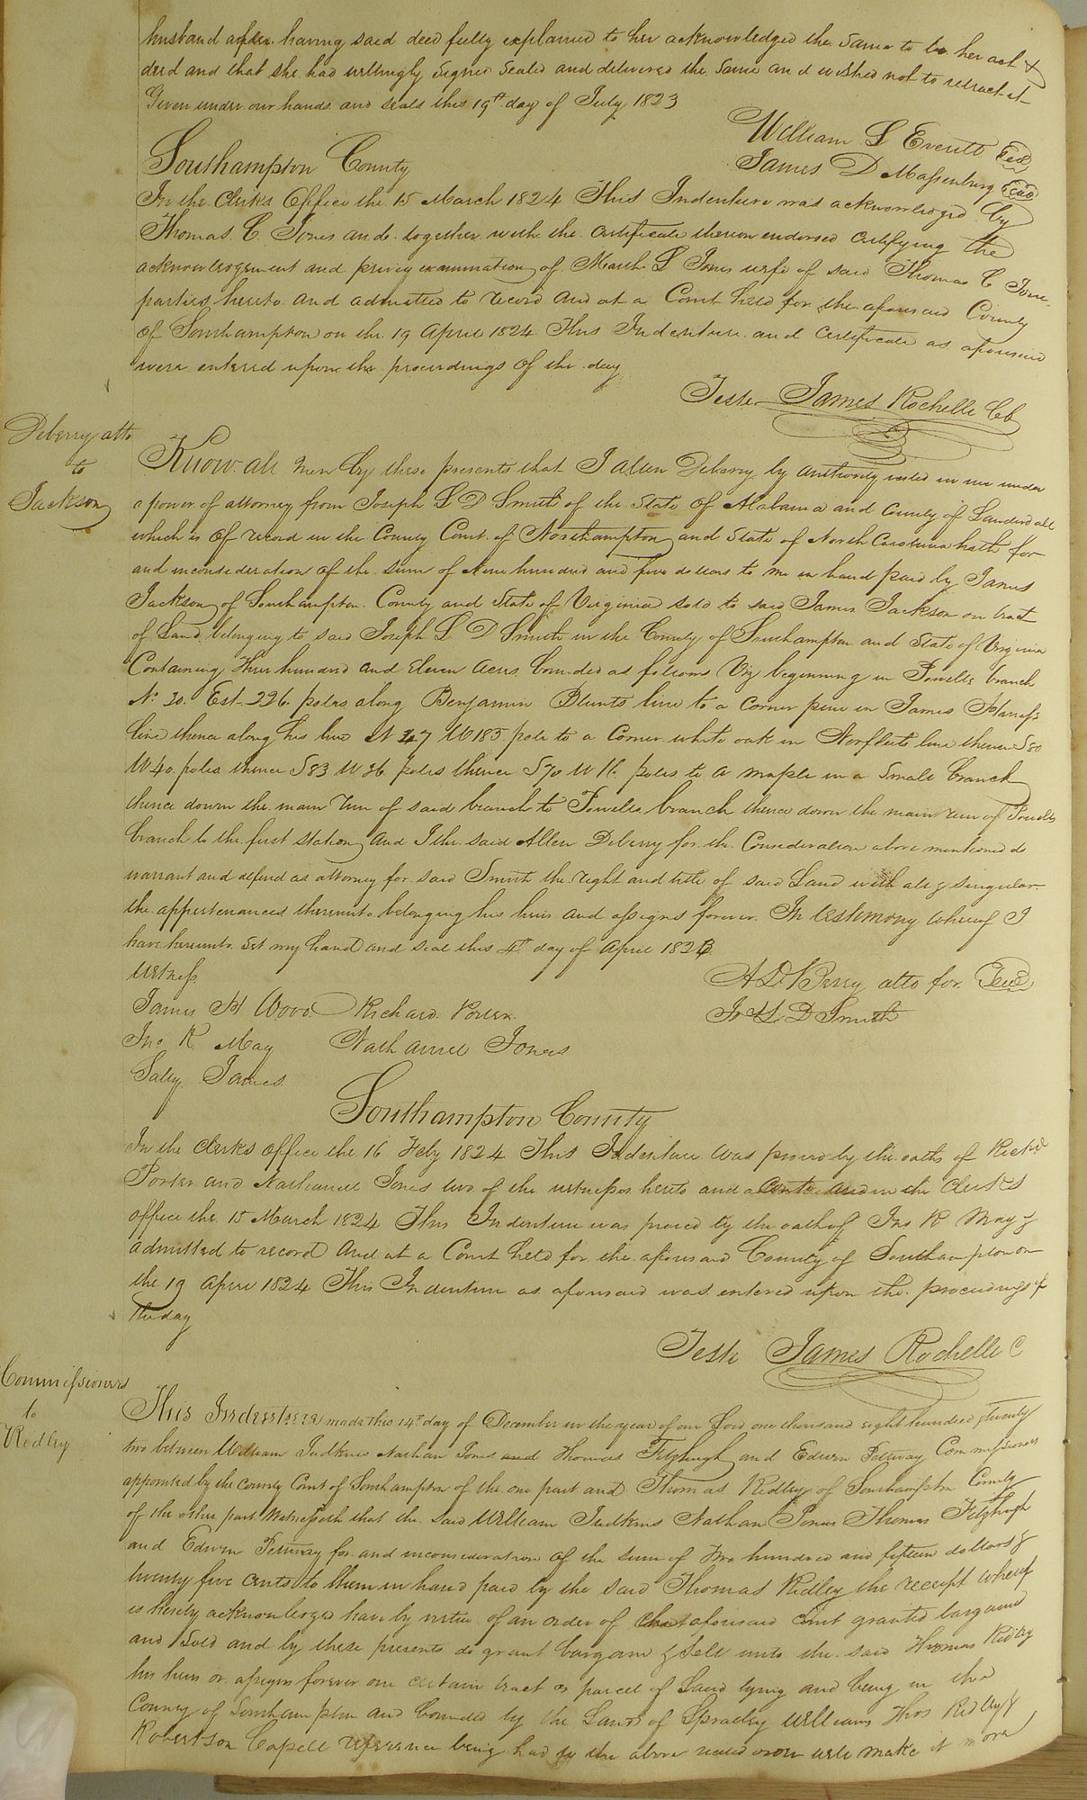 husband after having said deed fully explained to her acknowledged the same to be her act &
deed and that she had willingly signed sealed and delivered the same and wished not to retract it
Given under our hands and seals this 19th day of July 1823
William L Everitt Seal
James D Massenburg Seal
Southampton County
In the Clerks Office the 15 March 1824 This Indenture was acknowledged by
Thomas C. Jones and together with the certificate thereon endorsed certifying the
acknowledgment and privy examination of March L Jones wife of said Thomas C Jones
parties hereto and admitted to record And at a Court held for the aforesaid County
of Southampton on the 19 April 1824 This Indenture and certificate as aforesaid
were entered upon the proceedings of the day
Teste James Rochelle Cb
Deberry atto
to
Jackson
Know all Men by these presents that I Allen Deberry by authority vested in me under
a power of attorney from Joseph L D Smith of the State of Alabama and County of Lauderdale
which is of record in the County Court of Northampton and State of North Carolina hath for
and inconsideration of the sum of Nine hundred and five dollars to me in hand paid by James
Jackson of Southampton County and State of Virginia sold to said James Jackson on tract
of Land belonging to said Joseph L D Smith in the County of Southampton and State of Virginia
Containing Three hundred and Eleven Acres bounded as follows Viz beginning in Powells branch
No 20. Est. 226 poles along Benjamin Blunts line to a corner pine in James
line thence along his line N 27 W 185 pole to a Corner white oak in Norfleets line thence S80
W 40 poles thence S83 W 36 poles thence S70 W 16 poles to a maple in a small branch
thence down the main run of said branch to Powells branch thence down the main run of Powells
branch to the first station, and I the said Allen Deberry for the Consideration above mentioned do
warrant and defend as attorney for said Smith the right and title of said Land with all & singular
the appertenances thereunto belonging his heirs and assigns forever. In testimony whereof I
have hereunto set my hand and seal this 4th day of April 1823
Witness
A. DeBerry atto for Seal
Jo L. D Smith
James H Wood Richard Porter
Jno R May Nathaniel Jones
Sally James
Southampton County
In the Clerks office the 16 Feby 1824 This Indenture was proved by the oaths of Richd
Porter and Nathaniel Jones two of the witnesses hereto and in the Clerks
office the 15 March 1824 This Indenture was proved by the oath of Jno R May &
admitted to record And at a Court held for the aforesaid County of Southampton on
the 19 April 1824 This Indenture as aforesaid was entered upon the proceedings of
the day
Teste James Rochelle C
Commissioners
to
Ridley
This Indenture made this 14th day of December in the year of our Lord one thousand eight hundred & twenty
two between William Judkins Nathan Jones and Thomas Fitzhugh and Edwin Pettway Commissioners
appointed by the County Court of Southampton of the one part and Thomas Ridley of Southampton County
of the other part Witnesseth that the said William Judkins Nathan Jones Thomas Fitzhugh
and Edwin Pettway for and inconsideration of the sum of Two hundred and fifteen dollars &
twenty five cents to them in hand paid by the said Thomas Ridley the receipt whereof
is hereby acknowledged have by virtue of an order of that aforesaid court granted bargained
and sold and by these presents do grant bargain & sell unto the said Thomas Ridley
his heirs or assigns forever one certain tract or parcel of Land lying and being in the
County of Southampton and bounded by the Lands of Spratley Williams Thos Ridley &
Robertson Capell reference being had to the above order will make it more